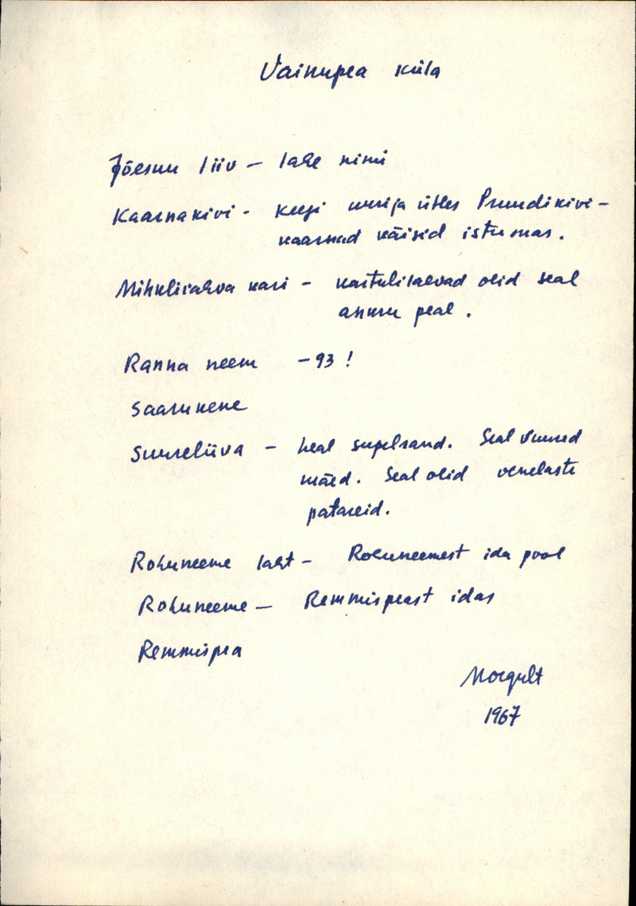 Vainupea küla
Jõesuu liiv – lahe nimi
Kaarnakivi - keegi ütles Pruudikivi –
kaarnad käisid istumas.
Mihklirahva kari – kartulilaevad olid seal
ankru peal.
Ranna neem – 93!
Saarukene
Suureliiva – heal supelrand. Seal
mäed. Seal olid venelaste
patareid.
Rohuneeme laht – Rohuneemest ida pool
Rohuneeme – Remmispeast idas
Remmispea
1967